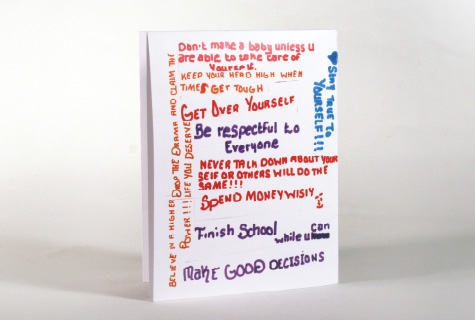 Don't make a baby unless u
are able to take care of
yourself.
KEEP YOUR HEAD HIGH WHEN
TIMES GET TOUGH
GET OVER YOURSELF
Be respectful to
Everyone
NEVER TALK DOWN ABOUT YOUR
SELF OR OTHERS WILL DO THE
SAME!!!
SPEND MONEY WISIY
Finish School
while u can
MAKE GOOD DECISIONS
STAY TRUE TO
YOURSELF!!!
DROP THE DRAMA AND CLAIM THE
LIFE YOU DESERVE
BELIEVE IN A HIGHER
POWER!!!